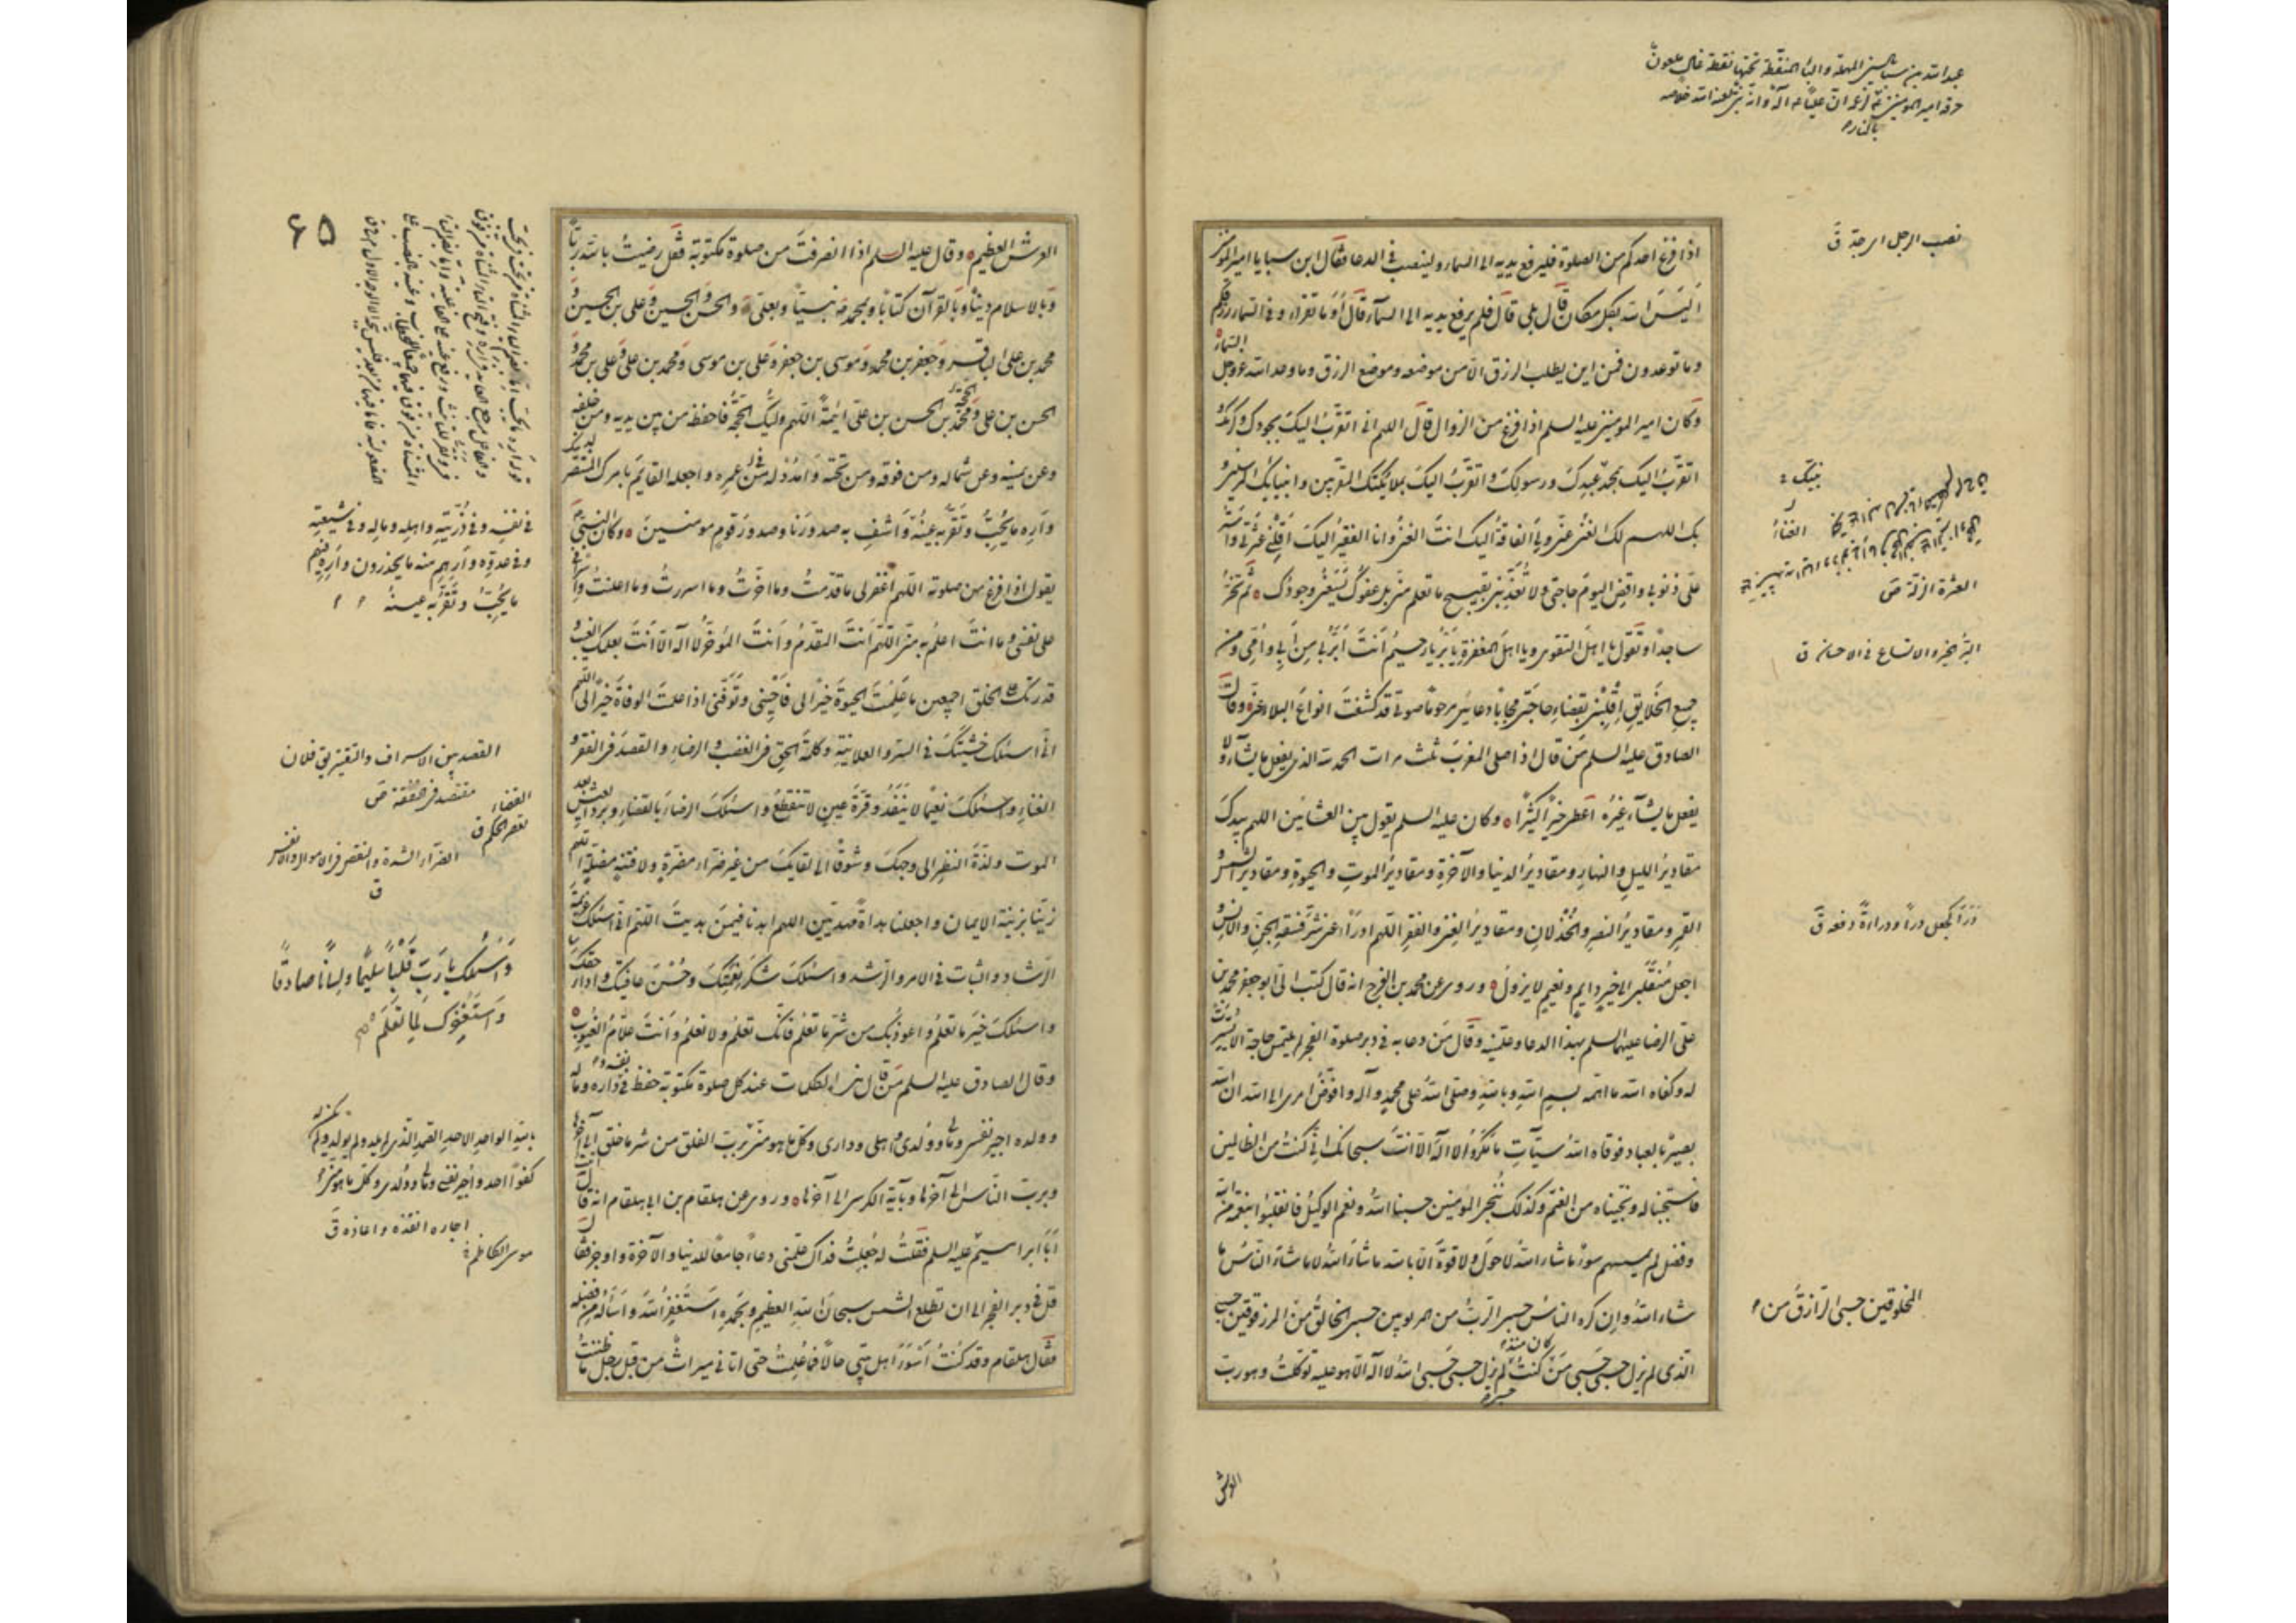 عبد الله بن سبا بالسين المهملة والباء المنقطة تحتها نقطة غال ملعون
حرقه امير المؤمنين بالنار
نصب الرجل اى جدّ ق
اذا فرغ احدكم من الصلوة فليرفع يديه الى السماء ولينصب فى الدعا فقال ابن سبا يا امير المؤمنين
اَليسَ الله بكل مكان قال بلى قال فلم يرفع يديه الى السمآء قال أَوَما تقراء وفى السماء رزقكم
وما توعدون فمن اين يطلب الرزق الّا من موضعه وموضع الرزق وما وعد الله عز وجل السماء
وكان امير المومنين عليه السلم اذا فرغ من الزوال قال اللهم انى اتقرّب اليك بجودك وكرمك و
اتقرّبُ اليك بمحمّد عبدِكَ ورسولِكَ واتقرّبُ اليكَ بملائكتك المقرّبين وانبيائك المرسلين و
بك اللهم لك الغنى عنّى وبى الفاقةُ اليك انتَ الغنىُّ وانا الفقيرُ اليكَ اَقِلْنى عثرتى واستُر
علَىّ ذنوبى واقضِ اليومَ حاجتى ولا تُعَذّبْنى بقبيح ما تعلم منّى بل عفوُك يَسَعُنى وجودُك ه ثم تخرّ
ساجداً وتقول يا اهلَ التقوى ويا اهلَ المغفرةِ يا بَرُّ يا رحيمُ اَنتَ اَبَرُّ بى مِن اَبى واُمّى ومن
جميعِ الخلايقِ اِقْلِبْنى بقضاءِ حاجتى مجاباً دعائى مرحوماً صوتى قد كشفتَ انواعَ البلاءِ عنّى ه وقال
الصادق عليه السلم مَن قال اذا صلى المغربَ ثلث مرات الحمد لله الذى يفعل ما يشآء ولا
يفعل ما يشآء غيرُه اُعطى خيراً كثيراً ه وكان عليه السلم يقول بين العشائين اللهم بيدكَ
مقاديرُ الليلِ والنهارِ ومقاديرُ الدنيا والآخرةِ ومقاديرُ الموتِ والحيوةِ ومقاديرُ الشمسِ و
القمرِ ومقاديرُ النصرِ والخُذلانِ ومقاديرُ الغِنى والفقرِ اللّهم ادرَأ عنى شرَّ فَسَقةِ الجنِّ والانسِ و
اجعل مُنقَلَبى الى خيرٍ دايمٍ ونعيمٍ لا يزولُ ه وروى عن محمد بن الفرج انه قال كتب الىّ ابو جعفر محمد بن
علىّ الرضا عليهما السلم بهذا الدعا وعلّمنيه وقال مَن دعا به فى دبر صلوة الفجر لم يلتمس حاجة الّا تيسّرت
له وكفاه الله ما اهمّه بسمِ اللهِ وباللهِ وصلّى اللهُ على محمدٍ وآلهِ واُفوّضُ امرى الى الله انّ الله
بصيرٌ بالعباد فوقاه اللهُ سيّآتِ ما مَكَرُوا لا الٓهَ الّا انتَ سبحانكَ انّى كنتُ من الظالمين
فاستجبنا له ونجّيناه من الغمّ وكذلك نُنجى المؤمنين حسبنا اللهُ ونعم الوكيلُ فانقلبوا بنعمة من الله
وفضل لم يمسسهم سوءٌ ما شاء اللهُ لا حولَ ولا قوّةَ الّا بالله ما شاءَ اللهُ لا ما شاءَ النّاسُ ما
شاء اللهُ واِن كره الناسُ حسبى الربُّ من المربوبين حسبى الخالقُ من المرزوقين حسبى
الّذى لم يزل حسبى حسبى مَن كان منذ كنتُ لم يزل حسبى حسبى اللهُ لا اله الّا هو عليه توكّلتُ وهو ربّ
نبيّك
العثرة الزلّة ص
البرّ الخير والاتساع فى الاحسان ق
دَرَأَ كجعل درأً ودراءةً دفعه ق
المخلوقين حسبىَ الرّازقُ من
العرش
٦٥
العرش العظيم ه وقال عليه السلم اذا انصرفتَ من صلوة مكتوبة فقل رضيتُ بالله ربّاً
وبالاسلام ديناً وبالقرآن كتاباً وبمحمد نبيّاً وبعلىّ والحسن والحسين وعلى بن الحسين و
محمد بن على الباقر وجعفر بن محمد وموسى بن جعفر وعلى بن موسى ومحمد بن على وعلى بن محمد و
الحسن بن على والحجّة محمّد بن الحسن بن على ائمّةً اللّهم وليُّك الحجّةُ فاحفظه من بين يديه ومن خلفه
وعن يمينه وعن شماله ومن فوقه ومن تحته وامدُدْ له فى عمره واجعله القايمَ بامرك المنتصر لدينك
واَرِه ما يُحِبُّ وتَقَرُّ به عينُه واَشْفِ به صدورَنا وصدورَ قومٍ مومنين ه وكان النبىّ
يقول اذا فرغ من صلوته اللّهم اغفر لى ما قدّمتُ وما اخّرتُ وما اسررتُ وما اعلنتُ واسرافى
على نفسى وما انتَ اعلمُ به منّى اللّهم اَنتَ المقدّمُ واَنتَ المؤخّرُ لا اله الّا اَنتَ بعلمك الغيبَ و
قدرتك على الخلق اجمعين ما عَلِمْتَ الحيوةَ خيراً لى فَاَحْيِنى وتَوَفَّنى اذا علمتَ الوفاةَ خيراً لى اللهم
انّى اسئلك خشيتَكَ فى السرّ والعلانيةِ وكلمةَ الحقِ فى الغضب والرضاءِ والقصدَ فى الفقر و
الغناءِ واسئلكَ نعيماً لا يَنفَدُ وقُرّةَ عينٍ لا تنقطعُ واسئلكَ الرضاءَ بالقضاءِ وبردَ العيش بعد
الموت ولذّةَ النظرِ الى وجهكَ وشوقاً الى لقايكَ من غيرِ ضرّاء مضرّةٍ ولا فتنةٍ مضلّةٍ اللهم
زيّنّا بزينة الايمان واجعلنا هداةً مهديّين اللهم اهدنا فيمَن هديتَ اللّهم انّى اسئلك عزيمة
الرّشاد والثبات فى الامر والرّشد واسئلكَ شكرَ نعمتِكَ وحُسنَ عافيتك واداءَ حقّك
واسئلكَ خيرَ ما تعلمُ واعوذُ بك من شرّ ما تعلمُ فانّك تعلمُ ولا نعلمُ واَنتَ علّامُ الغيوب ه
وقال الصادق عليه السلم مَن قال هذه الكلمات عند كل صلوة مكتوبة حفظ فى نفسه وداره وماله
وولده اجير نفسى ومالى وولدى واهلى ودارى وكلّ ما هو منّى بربّ الفلق من شر ما خلق الى آخرها
وبربّ النّاس الى آخرها وبآية الكرسى الى آخرها ه وروى عن هلقام بن ابى هلقام انه قال اتيت
اَبا ابراهيم عليه السلم فقلتُ له جُعِلتُ فداك علّمنى دعاءً جامعاً للدنيا والآخرة واوجز فقال
قل فى دبر الفجر الى ان تطلع الشمس سبحان اللهِ العظيمِ وبحمدِه اَستَغفِرُ اللهَ واَسألُه من فضله
فقال هلقام وقد كنتُ اَسْوَءَ اهل بيتى حالاً فما عَلِمتُ حتى اتانى ميراثٌ من قبل رجل ما ظننتُ
فى نفسه وفى ذُرّيّتِه واهلِه ومالِه وفى شيعتِه
وفى عدوِّه واَرِهِم منه ما يحذرون واَرِه فيهم
ما يُحِبُّ وتَقَرُّ به عينُه
القصد بين الاسراف والتقتير يق فلان
مقتصد فى نفقته ص
القضاء
يقصر الحكم ق
الضرّاء الشدة والنقص فى الاموال والانفس
ق
وَاَسئلُك يا ربِّ قَلْباً سليماً ولِساناً صادقاً
وَاَستَغْفِرُك لِما تَعْلَمُ
باللهِ الواحدِ الاحدِ الصّمدِ الّذى لم يلد ولم يولد ولم يكن له
كفوًا احد واُجير نفسى ومالى وولدى وكلّ ما هو منّى
اجاره انقذه واعاذه ق
موسى الكاظم